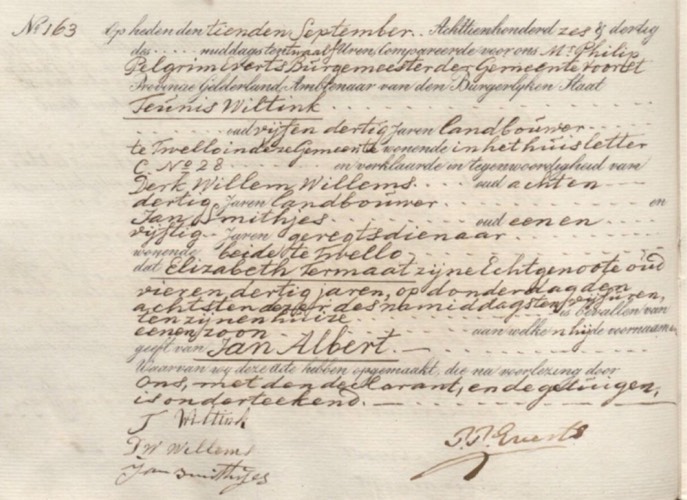 No 163 Op heden den tienden September . Achttienhonderd zes & dertig
des . . . . . middags ten twaalf Uren, compareerde voor ons Mr Philip
Pelgrim Everts Burgemeester der Gemeente Voorst
Provincie Gelderland, Ambtenaar van den Burgerlijken Staat
Teunis Wiltink
oud vijf en dertig Jaren landbouwer
te Twello in deze Gemeente wonende in het huis letter
C No 28 . . . en verklaarde in tegenwoordigheid van
Derk Willem Willems . . . oud acht en
dertig Jaren landbouwer . . . en
Jan Smithjes . . . oud een en
vijftig Jaren geregtsdienaar
wonende beide te Twello
dat Elizabeth Termaat zijne Echtgenoote oud
vier en dertig jaren, op donderdag den
achtsten dezer des namiddags ten vijf uren,
ten zijnen huize is bevallen van
eenen zoon aan welken hij de voornaam
geeft van Jan Albert. —
Waarvan wij deze akte hebben opgemaakt, die na voorlezing door
Ons, met den declarant, en de getuigen,
is onderteekend. —
T Wiltink
D W Willems
Jan Smithjes
P. P. Everts